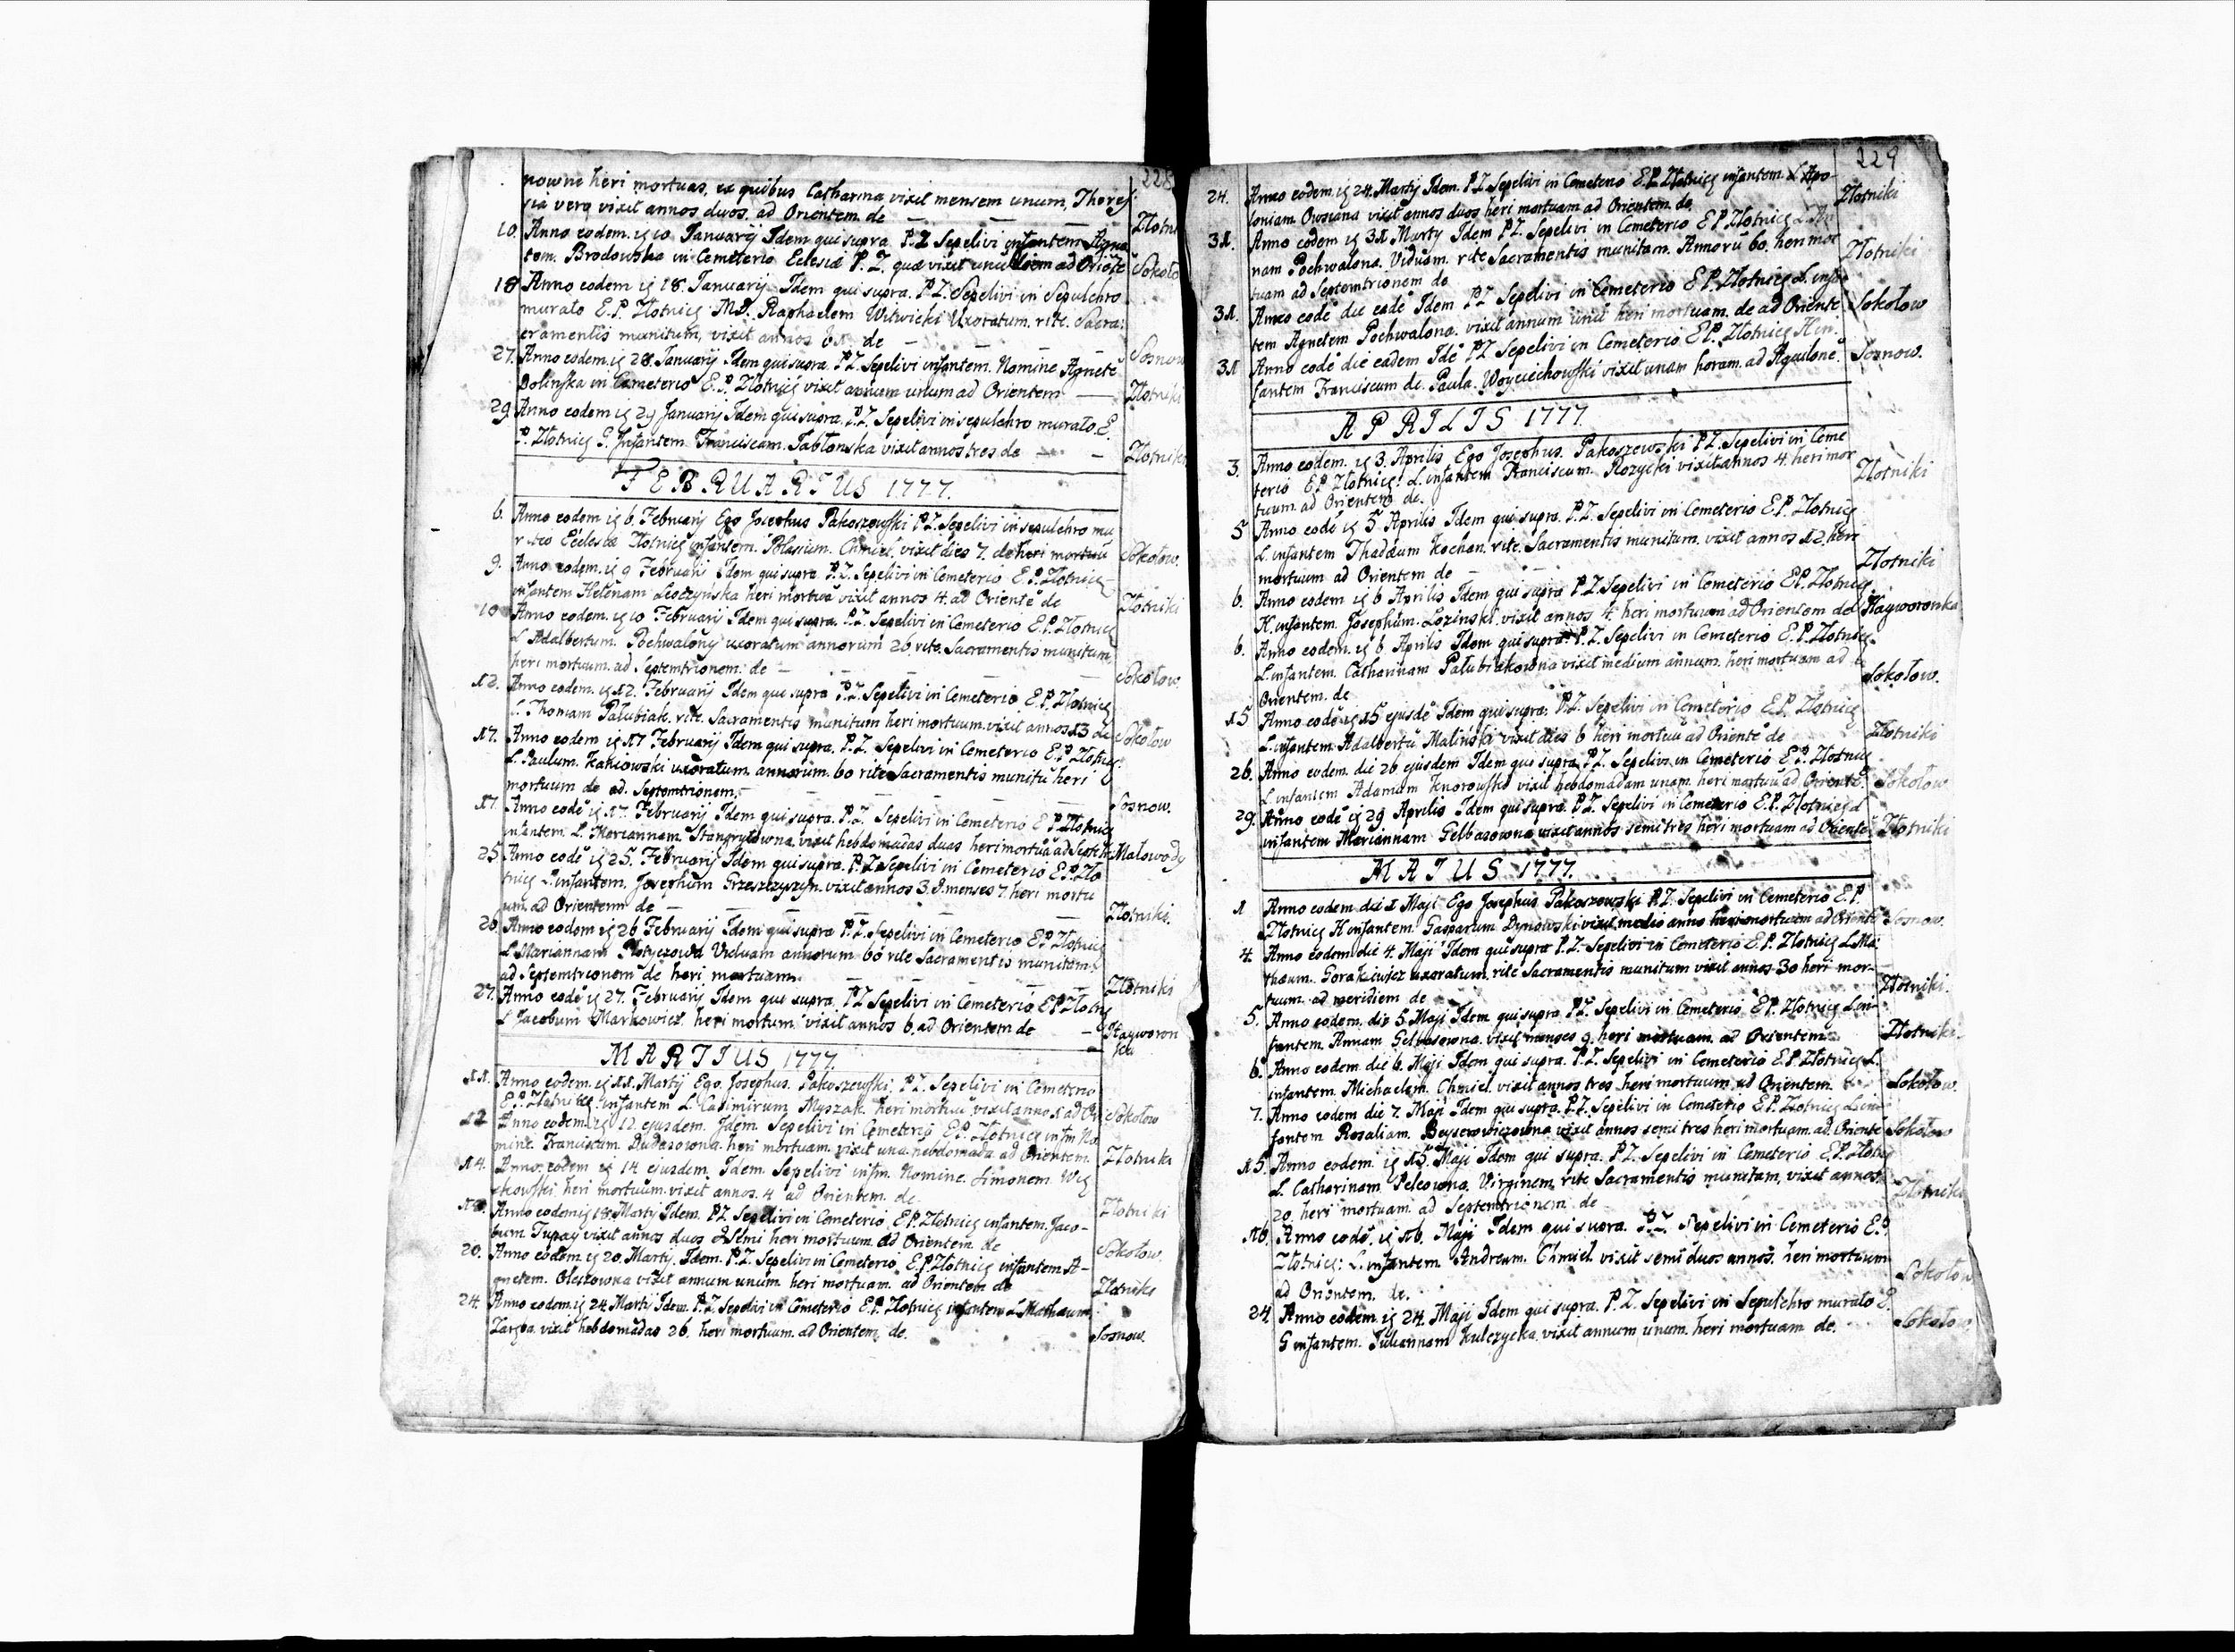 228
nowne heri mortuas, ex quibus Catharina vixit mensem unum, Theres:
sia vero vixit annos duos, ad Orientem de — Zlotni
10. Anno eodem ig 10 Januarij Idem qui supra P.Z. Sepelivi infantem Agne
tem. Brodowska in Cemeterio Eclesiæ P. Z. quæ vixit unū diem ad Oriētē Sokoło
18 Anno eodem ig 18. Januarij Idem qui supra. P.Z. Sepelivi in Sepulchro
murato E.P. Zlotnicę M.D. Raphaelem Witwicki Uxoratum. rite. Sacra:
cramentis munitum, vixit annos 61 de — Sosnow
27. Anno eodem. ig 28. Januarij Idem qui supra. P.Z. Sepelivi infantem. Nomine Agnetē
Dolinska in Cemeterio E.P. Zlotnicę vixit annum unum ad Orientem — Zlotniki
29 Anno eodem ig 29 Januarij Idem qui supra. P.Z. Sepelivi in sepulchro murato. E.
P. Zlotnicę G. Infantem. Franciscam. Jabłonska vixit annos tres de — Zlotniki
FEBRUARIUS 1777.
6. Anno eodem ig 6. Februarij Ego Josephus Pakoszewski P.Z. Sepelivi in sepulchro mu
rato Ecclesiæ Zlotnicę infantem. Blasium. Chmiel, vixit dies 7. de heri mortuū Sokołow.
9. Anno eodem. ig 9 Februarij Idem qui supra P.Z. Sepelivi in Cemeterio E.P. Zlotnicę
infantem Helenam Leoczynska heri mortuā vixit annos 4. ad Orientē de Zlotniki
10 Anno eodem. ig 10 Februarij Idem qui supra. P.Z. Sepelivi in Cemeterio E.P. Zlotnicę
L Adalbertum. Pochwalony uxoratum annorum 26. rite. Sacramentis munitum,
heri mortuum. ad Septemtrionem: de — Sokołow.
12. Anno eodem. ig 12. Februarij Idem qui supra P.Z. Sepelivi in Cemeterio E.P. Zlotnicę
L. Thomam Pałubiak. rite. Sacramentis munitum heri mortuum. vixit annos 13 de Sokołow
17. Anno eodem ig 17 Februarij Idem qui supra. P.Z. Sepelivi in Cemeterio E.P. Zlotnicę
L. Paulum. Kaniowski uxoratum. annorum. 60 rite Sacramentis munitū heri
mortuum de ad. Septemtrionem. — Sosnow.
17. Anno eodē ig 17. Februarij Idem qui supra. P.Z. Sepelivi in Cemeterio E P Zlotnicę
infantem L. Mariannam. Stangrytowna. vixit hebdomadas duas heri mortuā ad Septe Małowody
25 Anno eodē ig 25. Februarij Idem qui supra. P.Z. Sepelivi in Cemeterio E.P. Zło
tnicę L. infantem. Josephum Grzeszczyszyn. vixit annos 3. & menses 7. heri mortu
um. ad Orientem de — Zlotniki.
26. Anno eodem ig 26 Februarij Idem qui supra P.Z. Sepelivi in Cemeterio E.P. Zlotnicę
L Mariannam Viduam annorum 60 rite Sacramentis munitam,
ad Septemtrionem de heri mortuam. — Zlotniki
27. Anno eodē ig 27. Februarij Idem qui supra. P.Z Sepelivi in Cemeterio E.P. Zlotnicę
L Jacobum Markowicz. heri mortum. vixit annos 6. ad Orientem de — Hayworon
ka
MARTIUS 1777.
11. Anno eodem. ig 11. Martij Ego. Josephus. Pakoszewski. P.Z. Sepelivi in Cemeterio
E.P. Zlotnicę. infantem L. Casimirum Myszak. heri mortuū vixit anno 1 ad Or Sokołow
12 Anno eodem. ig 12. ejusdem. Idem Sepelivi in Cemeterio E.P. Zlotnicę infm No
mine. Franciscam. Dudasowna. heri mortuam. vixit una hebdomada ad Orientem. Zlotniki
14. Anno eodem ig 14 ejusdem. Idem. Sepelivi infm. Nomine. Simonem. Wię
ckowski, heri mortuum. vixit annos. 4 ad Orientem. de. Zlotniki
18. Anno eodem ig 18. Martij Idem. P.Z. Sepelivi in Cemeterio E.P. Zlotnicę infantem. Jaco-
bum Tupay vixit annos duos & Semi heri mortuum. ad Orientem de Sokołow.
20. Anno eodem. ig 20. Martij. Idem. P.Z. Sepelivi in Cemeterio E.P. Zlotnicę infantem A-
gnetem. Oleskowna vixit annum unum. heri mortuam. ad Orientem de Zlotniki
24. Anno eodem. ig 24 Martij Idem. P.Z. Sepelivi in Cemeterio E.P. Zlotnicę infantem L Mathæum.
Zaręba vixit hebdomadas 26. heri mortuum. ad Orientem. de. Sosnow.
229
24. Anno eodem. ig 24. Martij Idem. P.Z. Sepelivi in Cemeterio E.P. Zlotnicę infantem. L. Apo-
loniam. Owsiana vixit annos duos heri mortuam ad Orientem de Zlotniki
31. Anno eodem ig 31 Martij Idem P.Z. Sepelivi in Cemeterio E P Zlotnicę L. An
nam Pochwalona. Viduam. rite Sacramentis munitam. Annorū 60. heri mor
tuam ad Septemtrionem de Zlotniki
31. Anno eodē die eadē Idem P.Z Sepelivi in Cemeterio E.P. Zlotnicę L. infan
tem Agnetem Pochwalona. vixit annum unū heri mortuam. de ad Oriente Sokołow
31 Anno eodē die eadem Idē P.Z Sepelivi in Cemeterio E.P. Zlotnicę H in.
fantem Franciscum de. Paula. Woyciechowski vixit unam horam. ad Aquilonē. Sosnow.
APRILIS 1777.
3. Anno eodem. ig 3. Aprilis Ego Josephus. Pakoszewski P.Z. Sepelivi in Ceme
terio E.P. Zlotnicę. L. infantem Franciscum. Rozycki vixit annos 4. heri mor
tuum. ad Orientem de. Zlotniki
5 Anno eodē ig 5. Aprilis Idem qui supra. P.Z. Sepelivi in Cemeterio E.P. Zlotnicę
L. infantem Thadæum Kochan. rite. Sacramentis munitum. vixit annos 12. heri
mortuum ad Orientem de Zlotniki
6. Anno eodem ig 6 Aprilis Idem qui supra P.Z. Sepelivi in Cemeterio E.P. Zlotnicę
H. infantem. Josephum. Lozinski. vixit annos 4. heri mortuum ad Orientem de Hayworonka
6. Anno eodem. ig 6. Aprilis Idem qui supra. P.Z. Sepelivi in Cemeterio E.P. Zlotnicę.
L. infantem. Catharinam Pałubiakowna vixit medium annum. heri mortuam ad
Orientem. de Sokołow.
15 Anno eodē ig 15 ejusdē Idem qui supra. P.Z. Sepelivi in Cemeterio E.P. Zlotnicę
L. infantem Adalbertū Malinski vixit dies 6 heri mortuū ad Oriente de Zlotniki
26. Anno eodem. die 26 ejusdem Idem qui supra P.Z. Sepelivi in Cemeterio E.P. Zlotnicę
L. infantem Adamum Knorowski vixit hebdomadam unam. heri mortuū ad Orientē. Sokołow
29. Anno eodē ig 29 Aprilis Idem qui supra. P.Z. Sepelivi in Cemeterio E.P. Zlotnicę L
infantem Mariannam Gelbasowna vixit annos semi tres heri mortuam ad Oriente Zlotniki
MAIUS 1777.
1 Anno eodem die 1 Maji Ego Josephus Pakoszewski P.Z. Sepelivi in Cemeterio E.P.
Zlotnicę H infantem. Gasparum. Dynowski vixit medio anno heri mortuum ad Orientē Sosnow.
4. Anno eodem die 4. Maji Idem qui supra P.Z. Sepelivi in Cemeterio E.P. Zlotnicę L Ma:
thæum. Gorakiewicz uxoratum. rite Sacramentis munitum vixit annos 30 heri mor-
tuum. ad meridiem de Zlotniki.
5. Anno eodem. die 5 Maji Idem qui supra. P.Z. Sepelivi in Cemeterio E.P. Zlotnicę L in-
fantem. Annam Gelbasowna. vixit menses 9. heri mortuam. ad Orientem. Zlotniki.
6. Anno eodem die 6. Maji Idem qui supra. P.Z. Sepelivi in Cemeterio E.P. Zlotnicę L.
infantem Michaelem. Chmiel. vixit annos tres heri mortuum ad Orientem. Sokołow.
7. Anno eodem die 7. Maji Idem qui supra. P.Z. Sepelivi in Cemeterio E.P. Zlotnicę L in
fantem Rosaliam. Beyserowiczowna vixit annos semi tres heri mortuam. ad. Oriente Sokołow
15. Anno eodem. ig 15. Maji Idem qui supra. P.Z. Sepelivi in Cemeterio E.P. Zlotnicę
L. Catharinam Pelcowna. Virginem rite Sacramentis munitam, vixit annos.
20. heri mortuam. ad Septemtrionem. de Zlotniki
16. Anno eodē. ig 16. Maji Idem qui supra. P.Z. Sepelivi in Cemeterio E.P
Zlotnicę: L. infantem Andream. Chmiel. vixit semi duos annos. heri mortuum
ad Orientem. de. Sokołow
24 Anno eodem. ig 24. Maji Idem qui supra. P.Z. Sepelivi in Sepulchro murato E.
G infantem. Juliannam Kulczycka. vixit annum unum. heri mortuam de. Sokołow